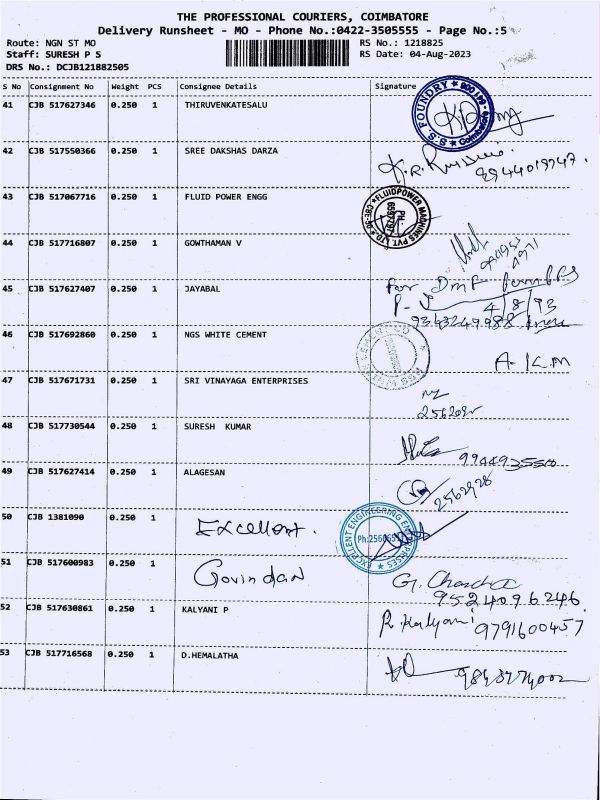 THE PROFESSIONAL COURIERS, COIMBATORE
Delivery Runsheet - MO - Phone No.:0422-3505555 - Page No.:5
Route: NGN ST MO RS No.: 1218825
Staff: SURESH P S RS Date: 04-Aug-2023
DRS No.: DCJB121882505
S No Consignment No Weight PCS Consignee Details Signature
41 CJB 517627346 0.250 1 THIRUVENKATESALU
S.S. FOUNDRY ★ Coimbatore
42 CJB 517550366 0.250 1 SREE DAKSHAS DARZA
43 CJB 517067716 0.250 1 FLUID POWER ENGG
FLUIDPOWER MACHINES PVT. LTD
44 CJB 517716807 0.250 1 GOWTHAMAN V
45 CJB 517627407 0.250 1 JAYABAL For
4/8/93
46 CJB 517692860 0.250 1 NGS WHITE CEMENT
A-KM
47 CJB 517671731 0.250 1 SRI VINAYAGA ENTERPRISES
48 CJB 517730544 0.250 1 SURESH KUMAR
49 CJB 517627414 0.250 1 ALAGESAN
50 CJB 1381090 0.250 1 Excellent. EXCELLENT ENGINEERING ENTERPRISES
51 CJB 517600983 0.250 1 Govindan
9524096246
52 CJB 517630861 0.250 1 KALYANI P R.Kalyani 9791600457
53 CJB 517716568 0.250 1 D.HEMALATHA